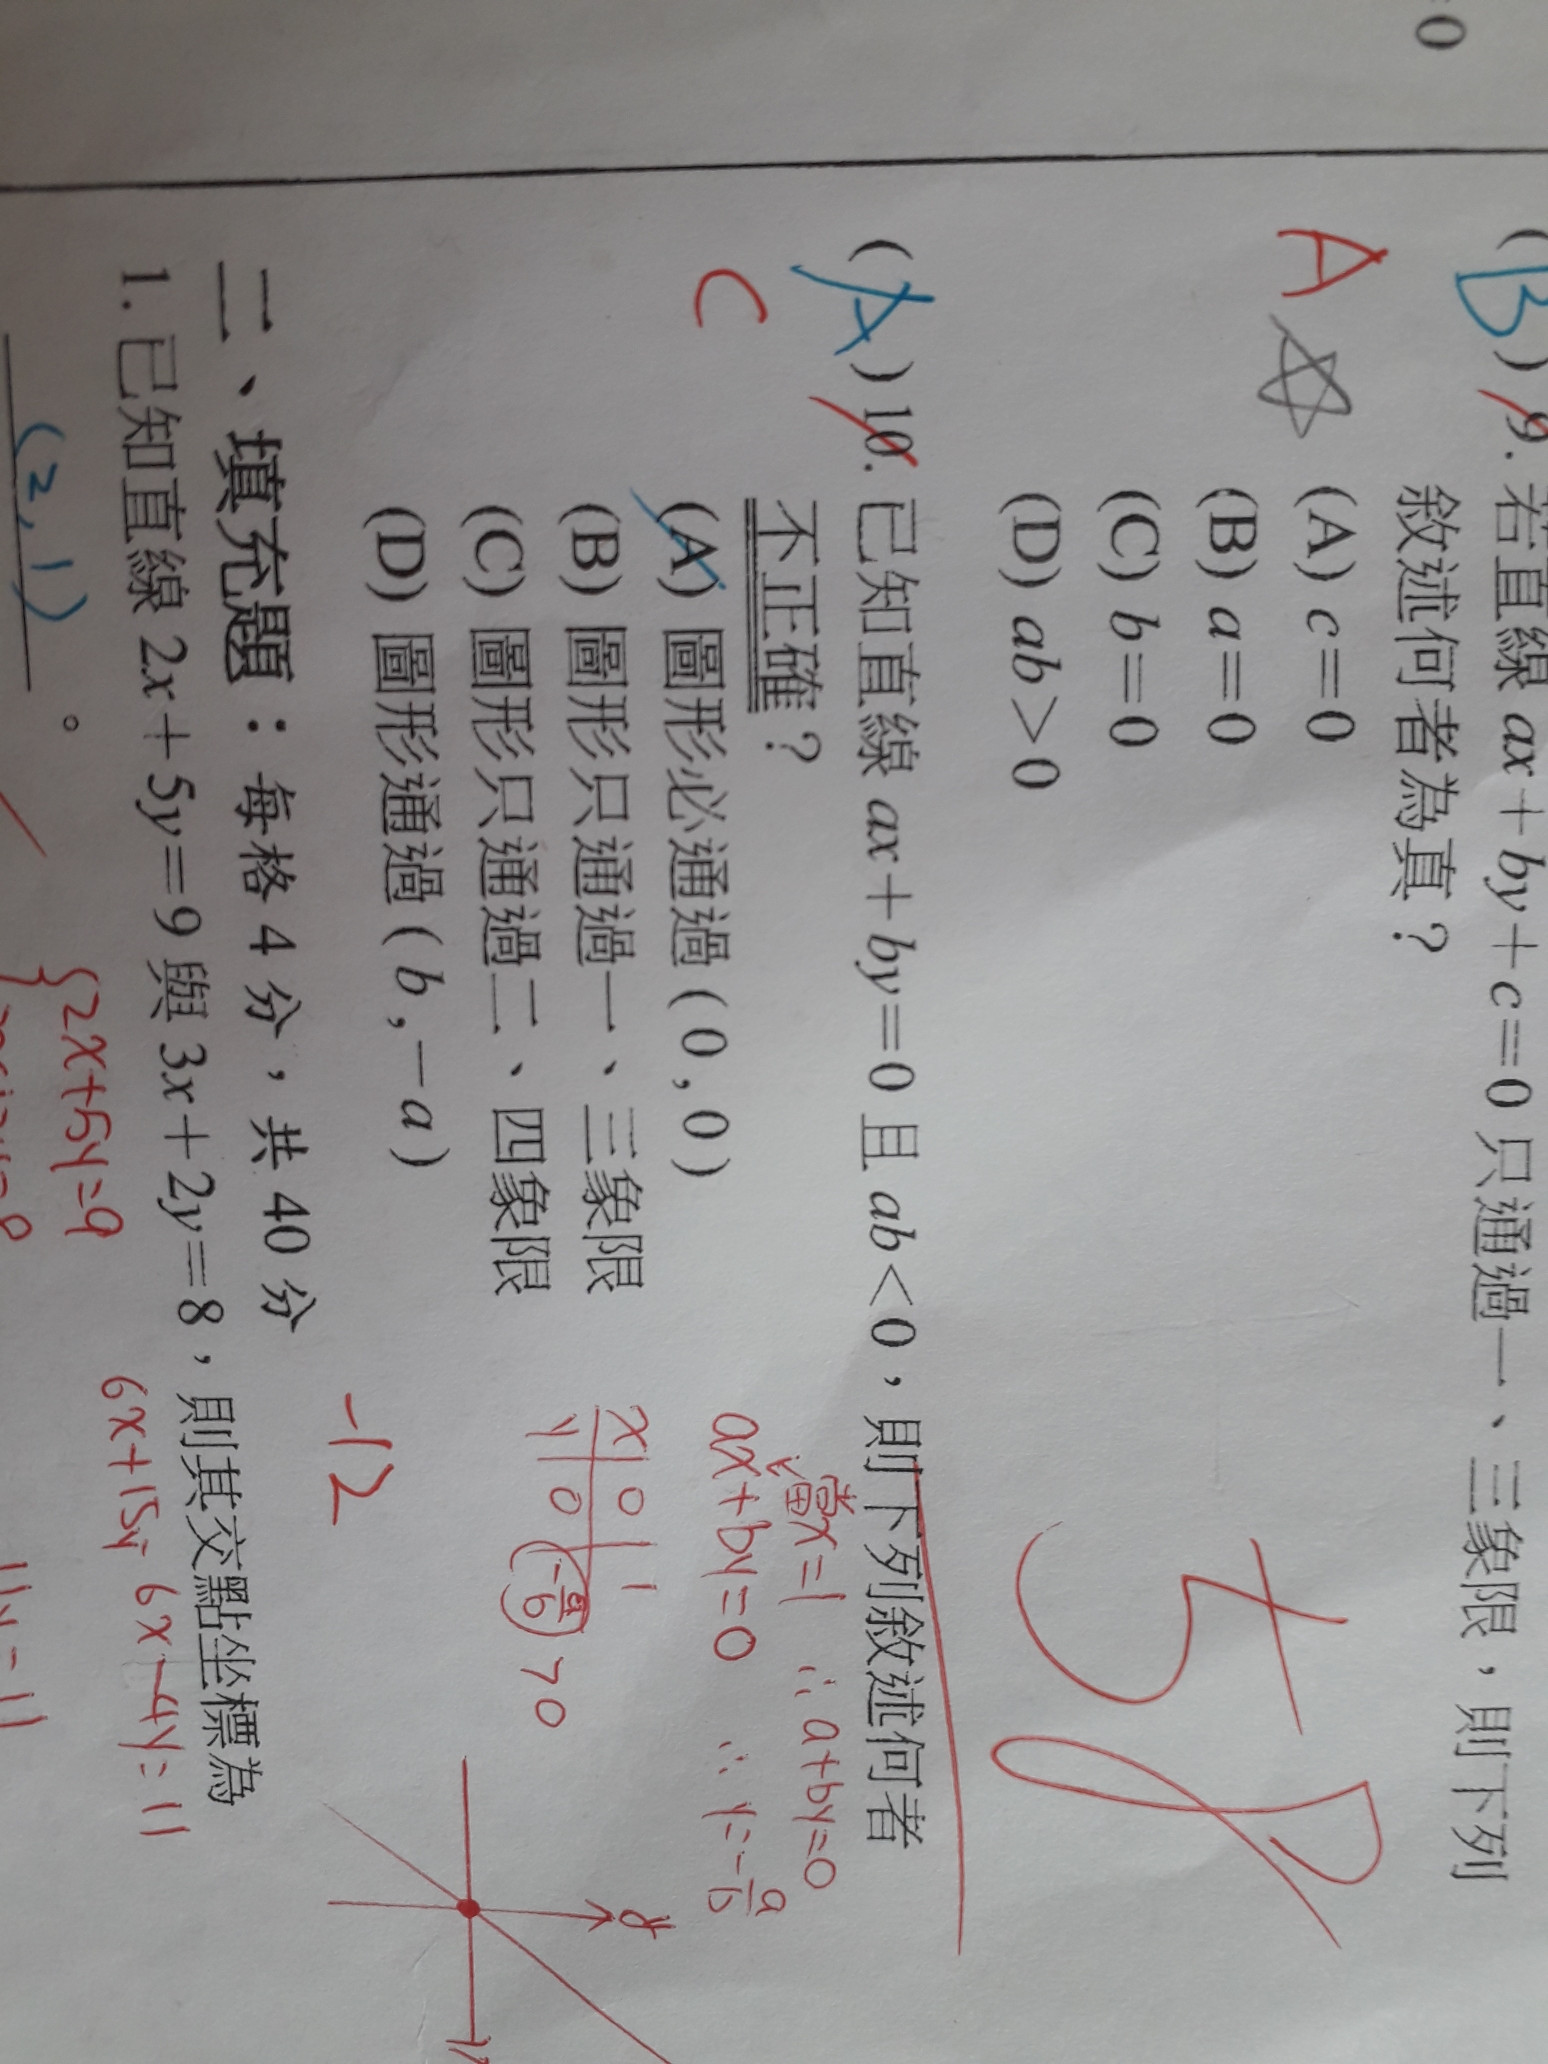 =0
(B) 9. 若直線 ax+by+c=0 只通過一、三象限，則下列
敘述何者為真？
A ☆ (A) c=0
(B) a=0
(C) b=0
(D) ab>0
(A) 10. 已知直線 ax+by=0 且 ab<0，則下列敘述何者
不正確？
當x=1 ∴a+by=0
C
(A) 圖形必通過 (0,0)
ax+by=0 ∴y=-a/b
(B) 圖形只通過一、三象限
x 0 1
(C) 圖形只通過二、四象限
y 0 (-a/b) >0
y
(D) 圖形通過 (b,-a)
-12
二、填充題：每格 4 分，共 40 分
1. 已知直線 2x+5y=9 與 3x+2y=8，則其交點坐標為
(2,1)。
{2x+5y=9
6x+15y-6x-4y=11
11y=11